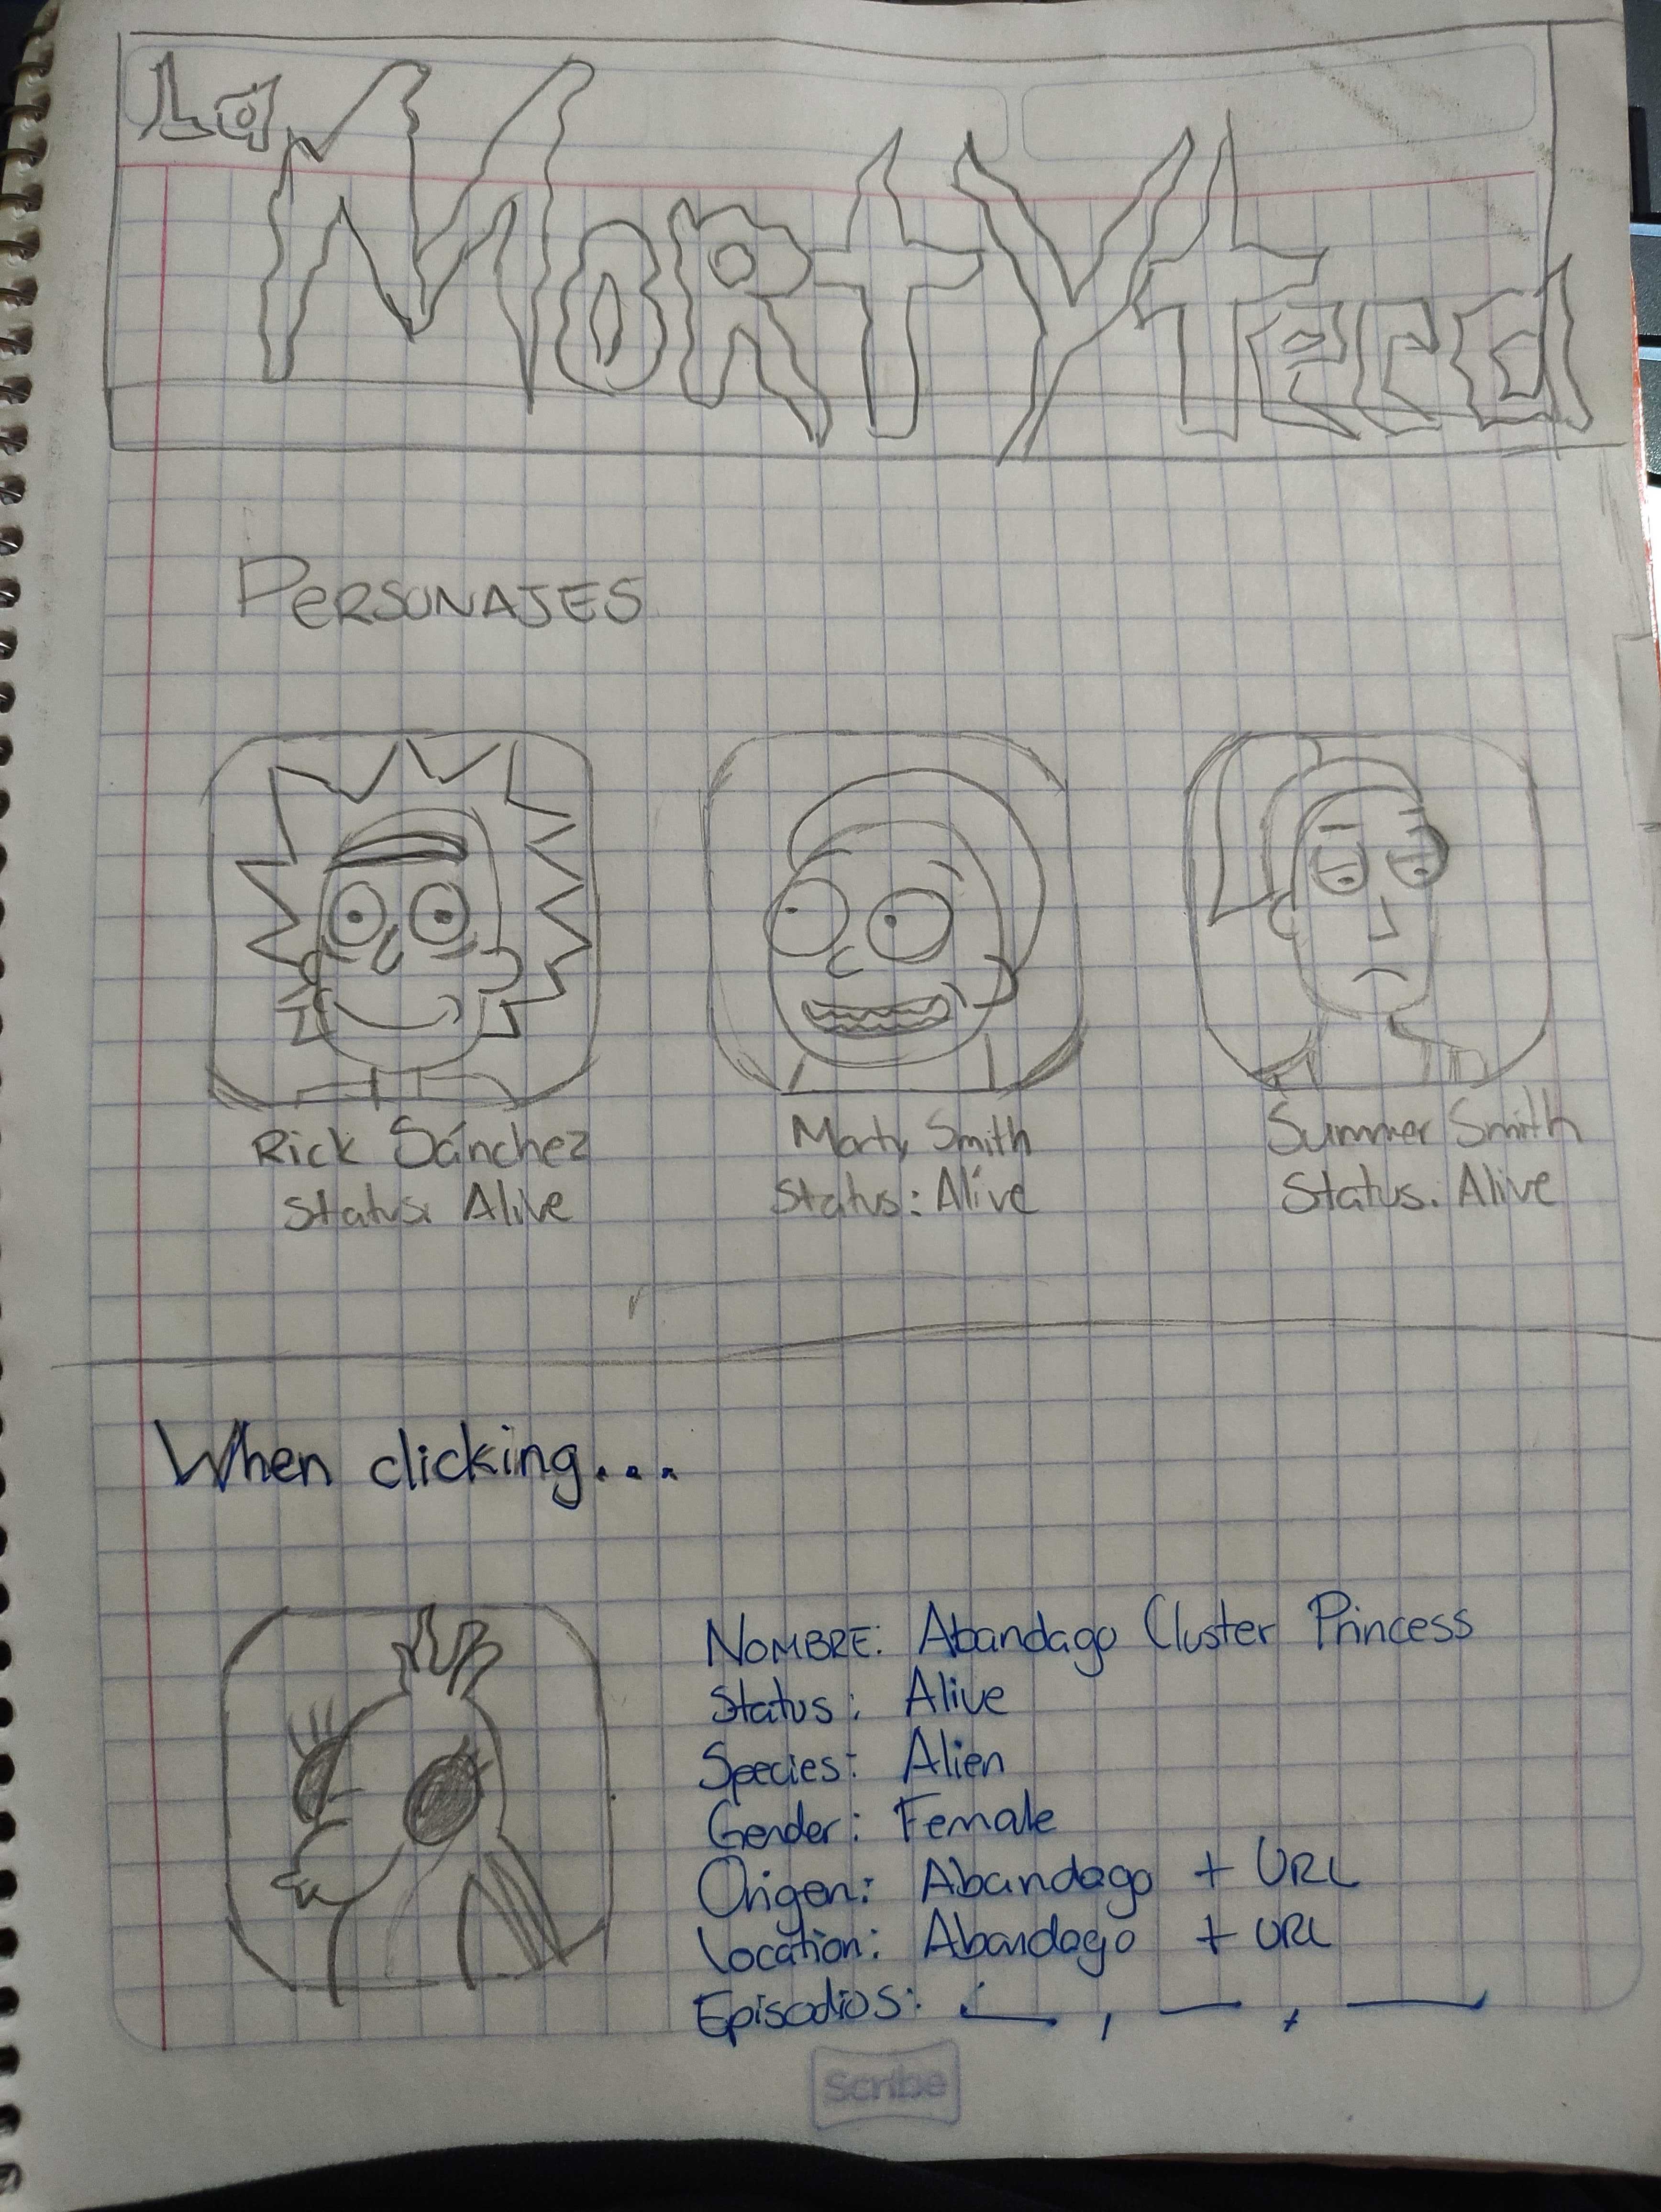 La MortyTeca
PERSONAJES
Rick Sánchez
Status: Alive
Morty Smith
Status: Alive
Summer Smith
Status: Alive
When clicking...
NOMBRE: Abandago Cluster Princess
Status: Alive
Species: Alien
Gender: Female
Origen: Abandago + URL
Location: Abandago + URL
Episodios: __, __, __
scribe